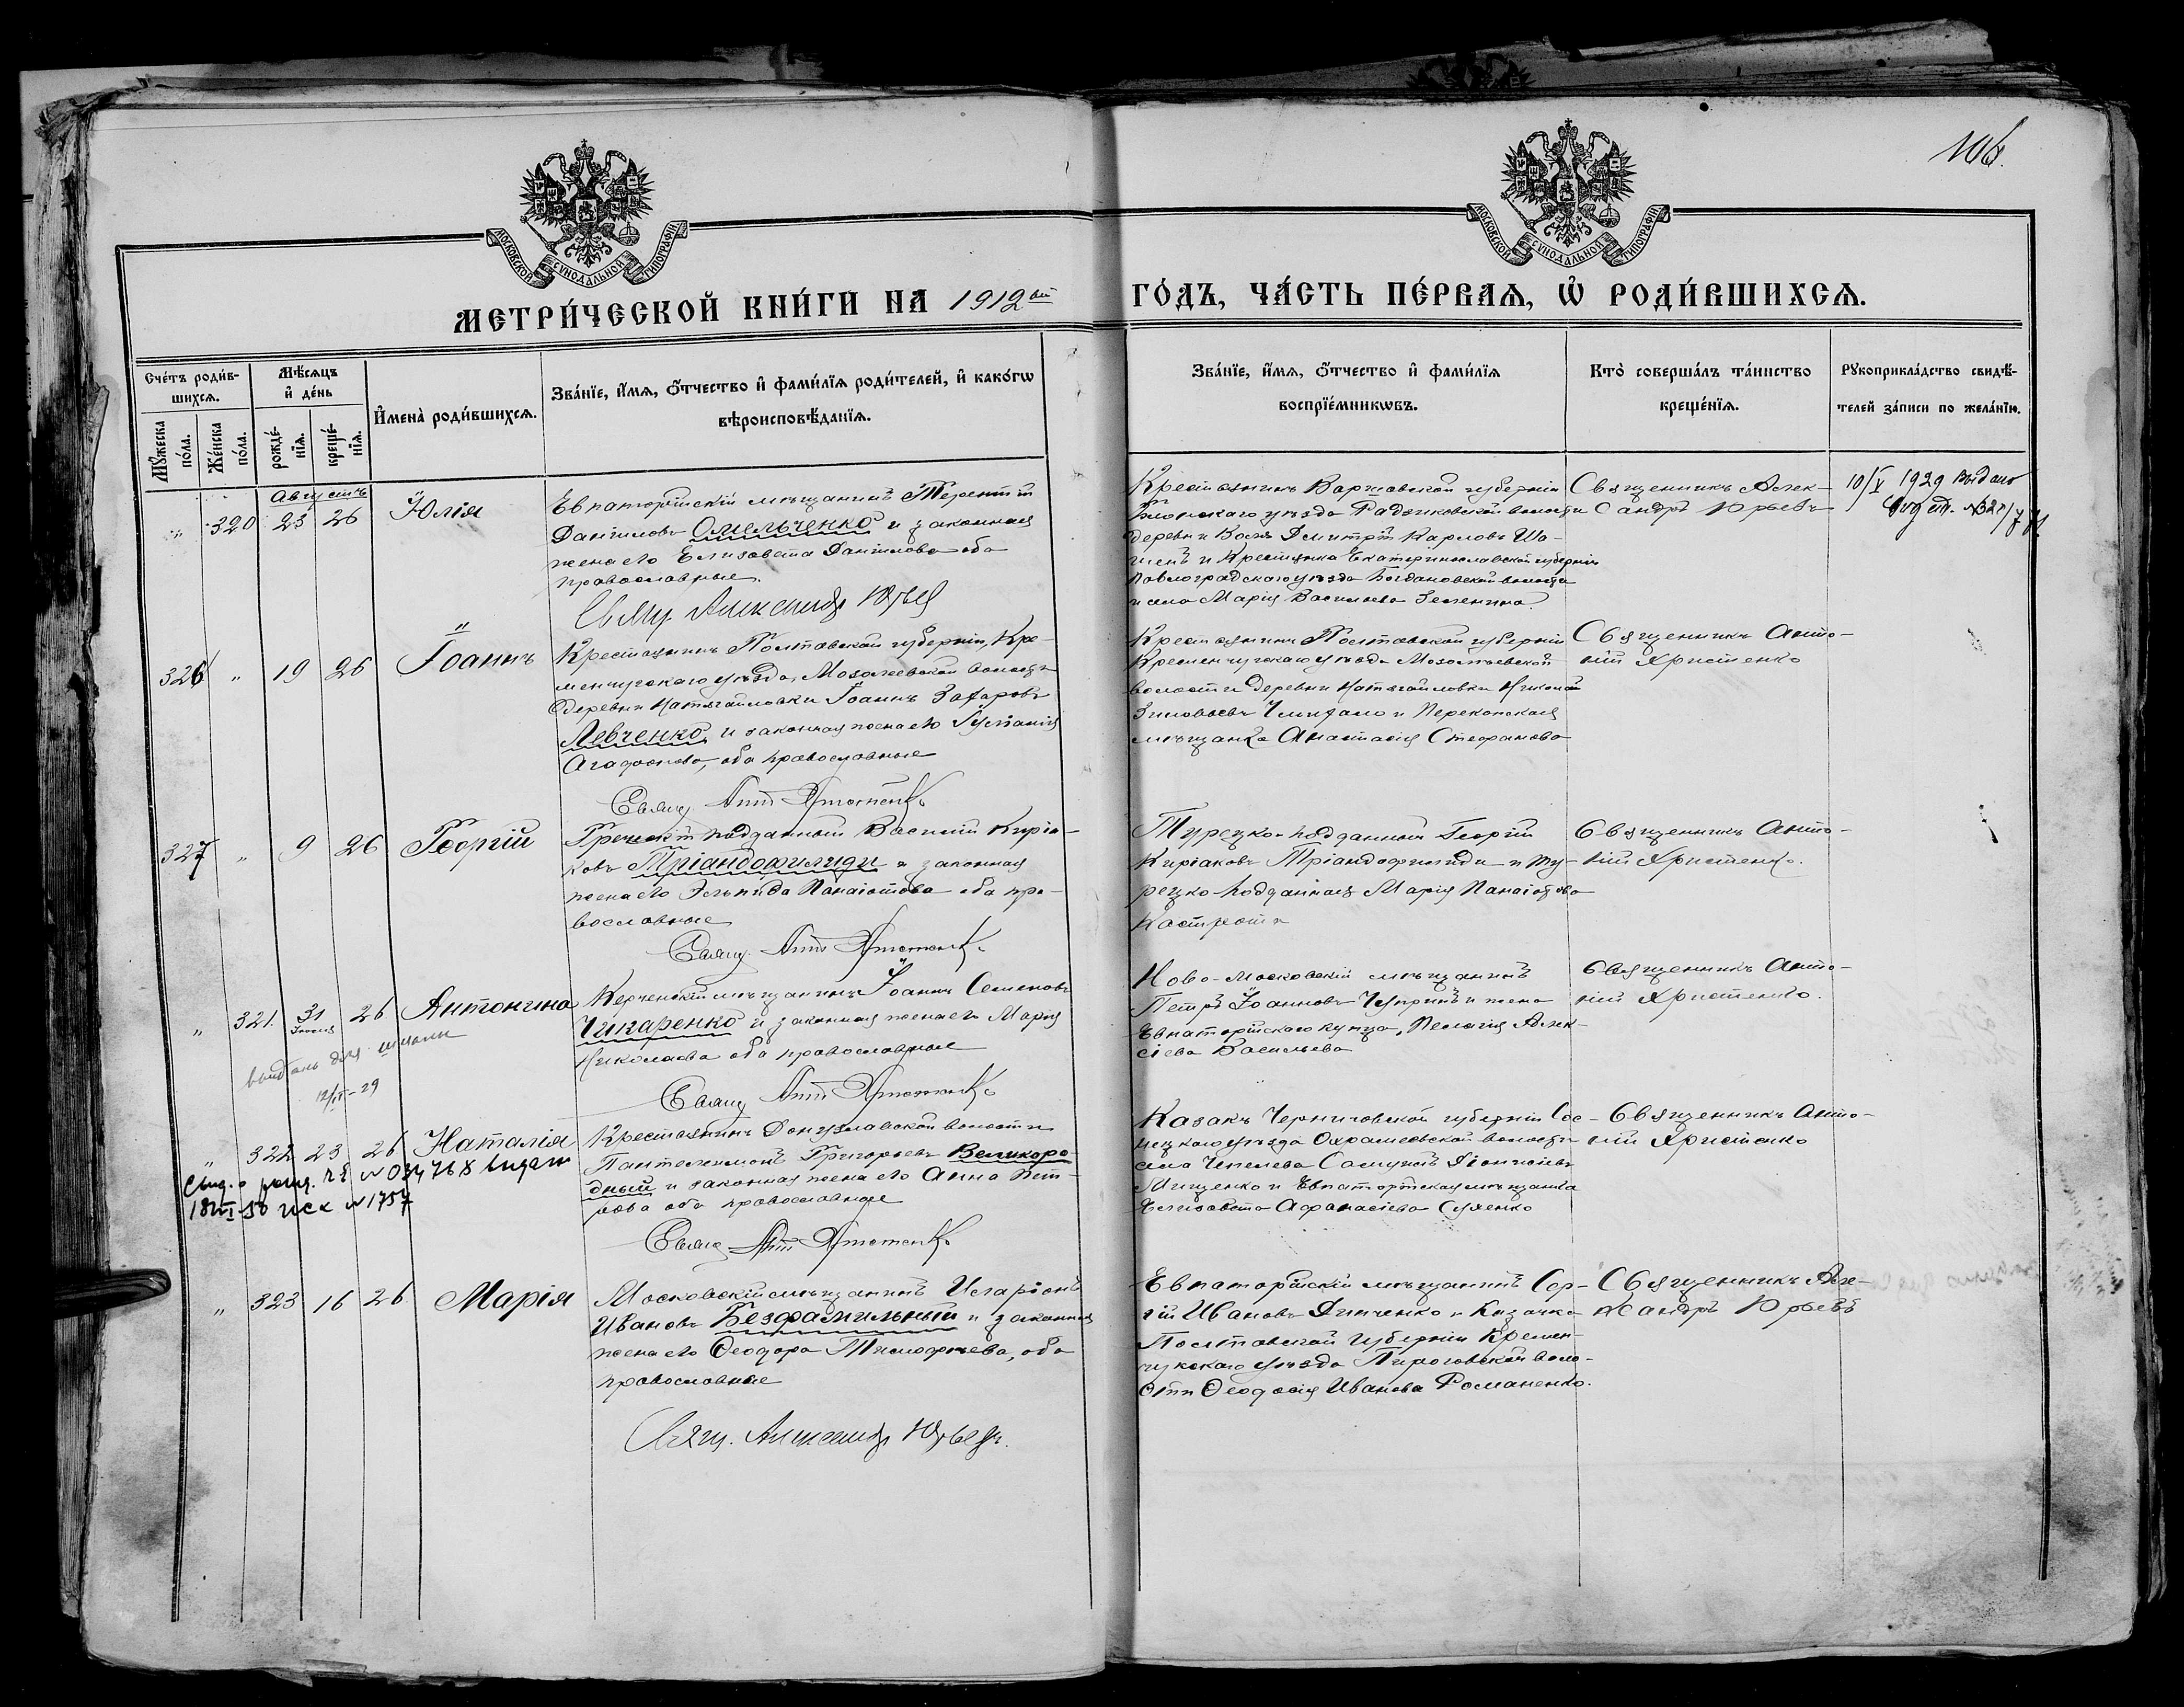 106.
МОСКОВСКОЙ СѴНОДАЛЬНОЙ ТИПОГРАФІИ
МОСКОВСКОЙ СѴНОДАЛЬНОЙ ТИПОГРАФІИ
МЕТРИ́ЧЕСКОЙ КНИ́ГИ НА 1912ый ГО́ДЪ, ЧА́СТЬ ПЕ́РВАѦ, Ѽ РОДИ́ВШИХСѦ.
Сче́тъ роди́в-
шихсѧ.
Мꙋ́жеска
по́ла.
Же́нска
по́ла.
Мѣ́сѧцъ
и҆ де́нь
рожде́-
нїѧ.
креще́-
нїѧ.
И҆мена̀ роди́вшихсѧ.
Зва́нїе, и҆́мѧ, ѻ҆́тчество и҆ фами́лїѧ роди́телей, и҆ како́гѡ
вѣроисповѣ́данїѧ.
Зва́нїе, и҆́мѧ, ѻ҆́тчество и҆ фами́лїѧ
воспрїе́мникѡвъ.
Кто̀ соверша́лъ та́инство
креще́нїѧ.
Рꙋкоприкла́дство свидѣ́-
телей за́писи по жела́нїю.
Августъ
„ 320 23 26 Юлія
Евпаторійскій мѣщанинъ Терентій
Даніиловъ Омельченко и законная
жена его Елизавета Даніилова оба
православные.
Свящ. Александр Юрьев
Крестьянинъ Варшавской губерніи
Блонскаго уѣзда Радзиковской волости
деревни Воля Дмитрій Карловъ Ша-
и Крестьянка Екатеринославской губерніи
Павлоградскаго уѣзда Богдановской волости
и села Марія Васильева Земенина.
Священникъ Алек-
сандръ Юрьевъ
10/V 1929 выдано
326 „ 19 26 Іоаннъ
Крестьянинъ Полтавской губерніи, Кре-
менчугскаго уѣзда, Мозолеевской волости
деревни Натягайловки Іоаннъ Захаровъ
Левченко и законная жена его Іуліанія
Агафонова, оба православные
Свящ. Ант Христенко
Крестьянинъ Полтавской губерніи
Кременчугскаго уѣзда Мозолѣевской
волости деревни Натягайловки Николай
Зиновьевъ и Перекопская
мѣщанка Анастасія Стефанова
Священникъ Анто-
ній Христенко
327 „ 9 26 Георгій
Греческій подданный Василій Киріа-
ковъ Тріандофилиди и законная
жена его Эльпида Панаіотова оба пра-
вославные
Свящ. Ант Христенко
Турецко-подданный Георгій
Киріаковъ Тріандофилиди и ту-
рецко-подданная Марія Панаіотова
Священникъ Анто-
ній Христенко.
„ 321. 31 Іюля 26 Антонина
выдань для школы
12/IX-29
Керченскій мѣщанинъ Іоаннъ Семеновъ
Чикаренко и законная жена его Марія
Николаева оба православные
Свящ Ант Христенко
Ново-Московскій мѣщанинъ
Петръ Іоанновъ Чупринъ и жена
Евпаторійскаго купца, Пелагія Алек-
сіева Васильева
Священникъ Анто-
ній Христенко.
„ 322 23 26 Наталія
Свид. о рожд. № 034768 выдан
№ 1757
Крестьянинъ Донузлавской волости
Пантелеимонъ Григорьевъ Великоро-
дный и законная жена его Анна Пет-
рова оба православные
Свящ Ант Христенко
Казакъ Черниговской губерніи Сос-
ницкаго уѣзда Охрамеевской волости
села Самуилъ Діонисіевъ
Мищенко и Евпаторійская мѣщанка
Елизавета Афанасіева Суленко
Священникъ Анто-
ній Христенко
„ 323 16 26 Марія
Московскій мѣщанинъ Иларіонъ
Ивановъ Безфамильный и законная
жена его Ѳеодора Тимофеева, оба
православные
Свящ. Александр Юрьевъ.
Евпаторійскій мѣщанинъ Сер-
гій Ивановъ Динченко и Казачка
Полтавской губерніи Кремен-
чугскаго уѣзда Пироговской воло-
сти Ѳеодосія Иванова Романенко.
Священникъ Але-
ксандръ Юрьевъ